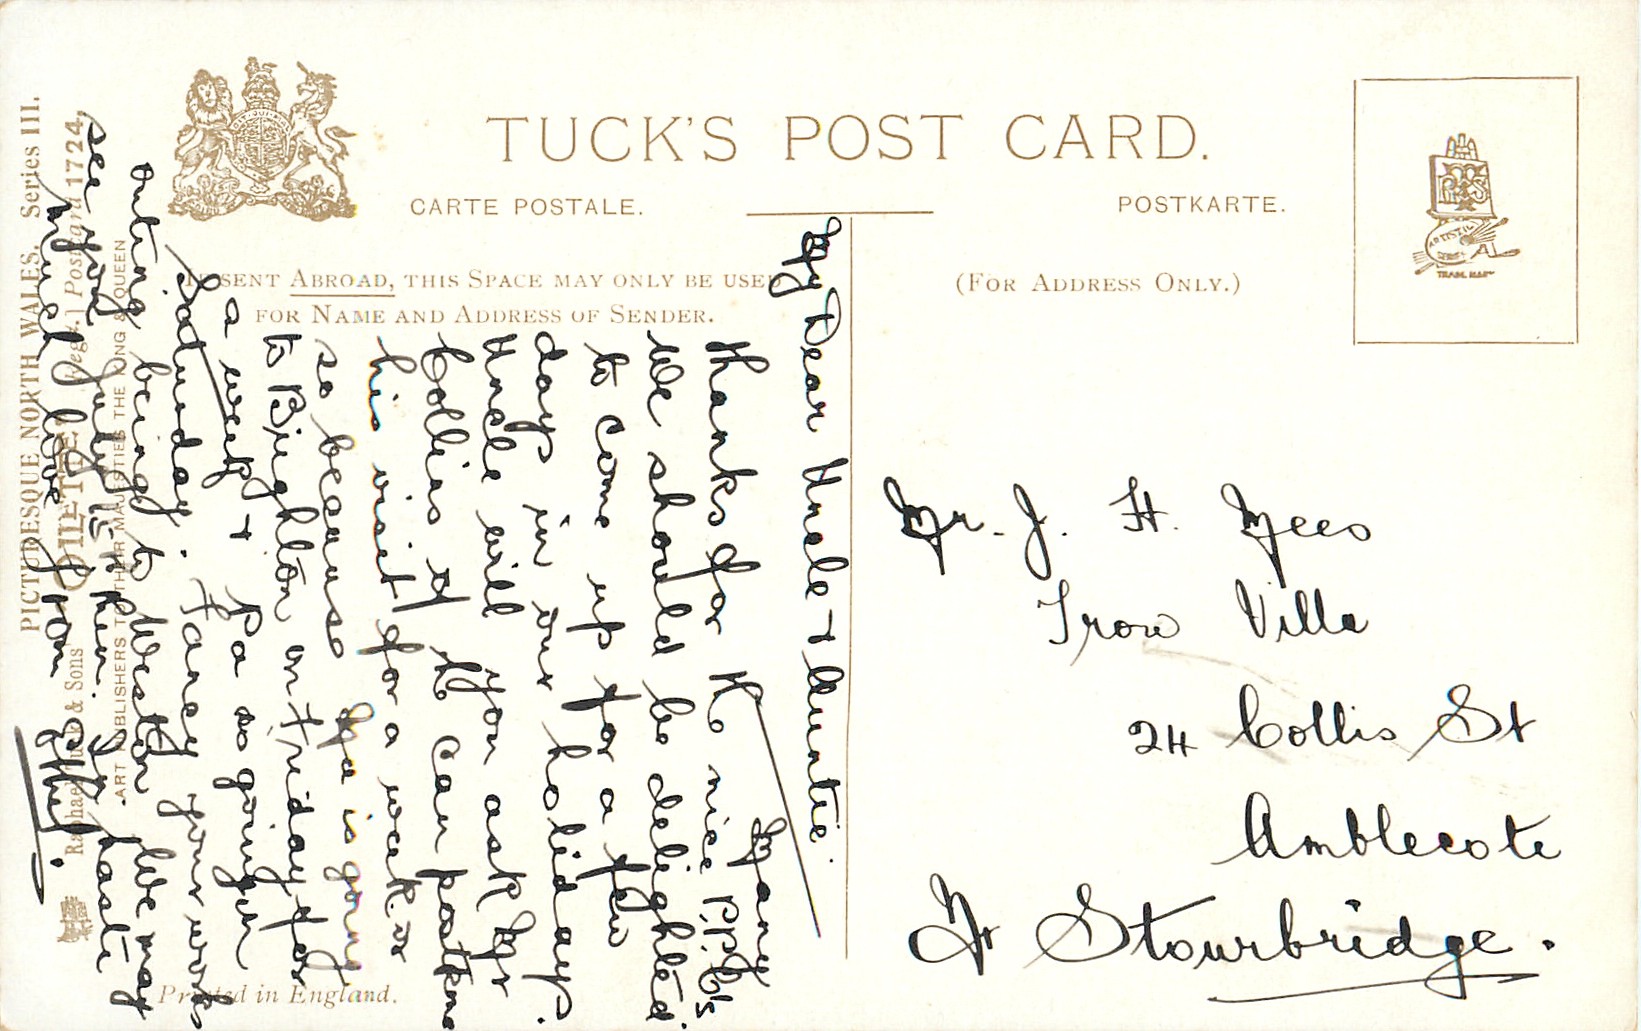 TUCK'S POST CARD.
CARTE POSTALE.
POSTKARTE.
IF SENT ABROAD, THIS SPACE MAY ONLY BE USED
FOR NAME AND ADDRESS OF SENDER.
(FOR ADDRESS ONLY.)
ARTISTIC
SERIES
TRADE MARK
My Dear Uncle & Auntie.
Many
thanks for the nice P.P.C's.
We should be delighted
to come up for a few
days in our holidays.
Uncle will you ask Mr
Collins if he can postpone
his visit for a week or
so because Ma is going
to Brighton on Friday for
a week & Pa is going on
Saturday. Fancy your works
outing being to Weston We may
see you July 15th then. In haste
Much love from Ethel.
Mr. J. H. Mees
Trow Villa
24 Collis St
Amblecote
Nr Stourbridge.
PICTURESQUE NORTH WALES. Series III.
Raphael Tuck & Sons "OILETTE" [Regd.] Postcard 1724,
ART PUBLISHERS TO THEIR MAJESTIES THE KING & QUEEN
Printed in England.